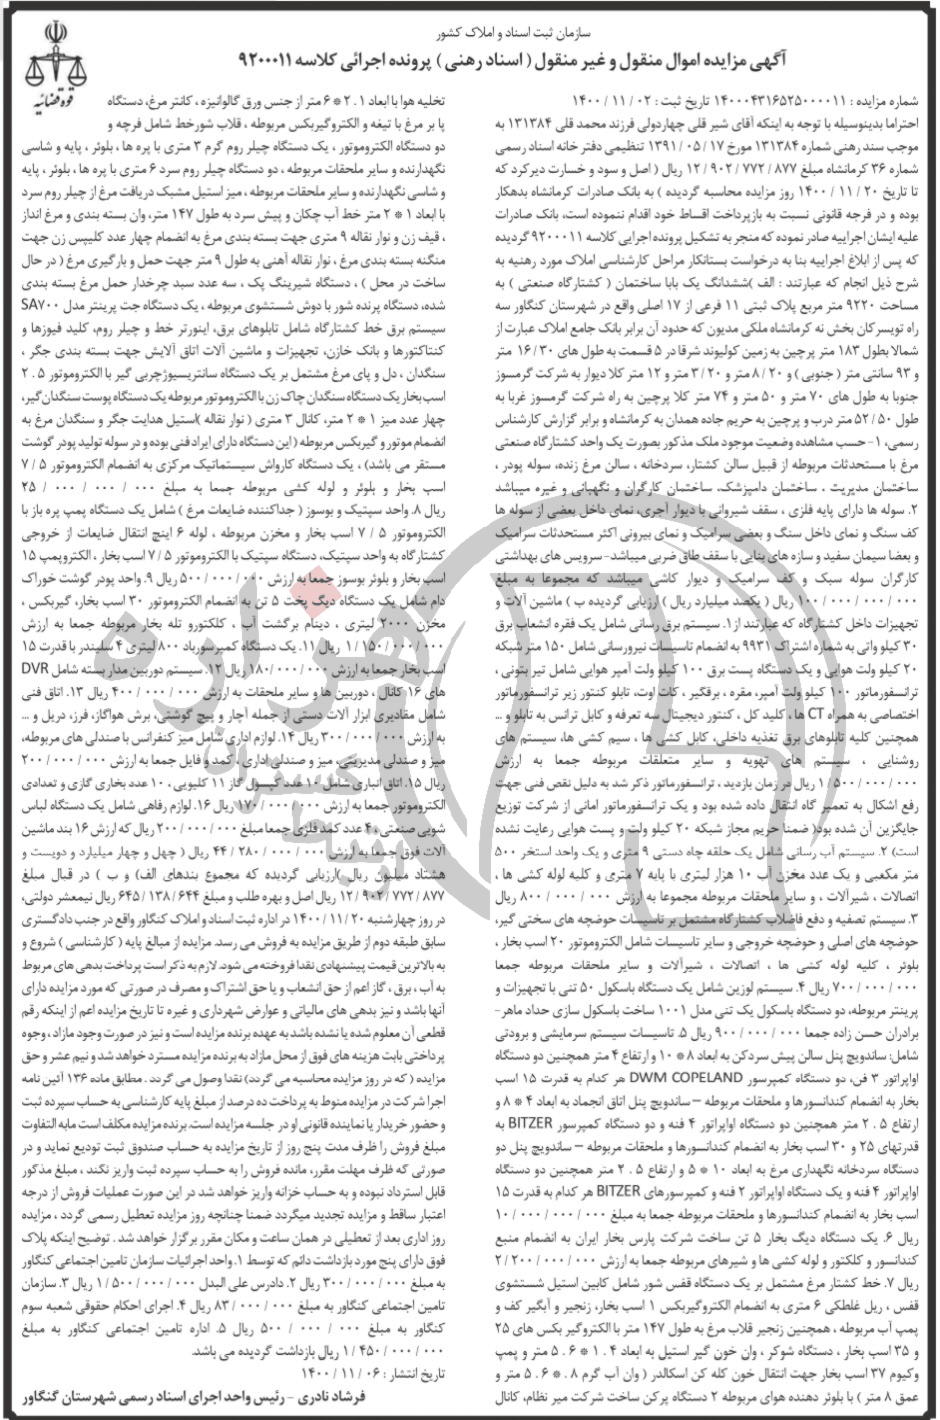 سازمان ثبت اسناد و املاک کشور
آگهی مزایده اموال منقول و غیر منقول ( اسناد رهنی ) پرونده اجرائی کلاسه ۹۲۰۰۰۱۱
قوه قضائیه
شماره مزایده : ۱۴۰۰۰۴۳۱۶۵۲۵۰۰۰۰۱۱ تاریخ ثبت : ۰۲ / ۱۱ / ۱۴۰۰
احتراما بدینوسیله با توجه به اینکه آقای شیر قلی چهاردولی فرزند محمد قلی ۱۳۱۳۸۴ به
موجب سند رهنی شماره ۱۳۱۳۸۴ مورخ ۱۷ / ۰۵ / ۱۳۹۱ تنظیمی دفتر خانه اسناد رسمی
شماره ۳۶ کرمانشاه مبلغ ۸۷۷ / ۷۷۲ / ۹۰۲ / ۱۲ ریال ( اصل و سود و خسارت دیرکرد که
تا تاریخ ۲۰ / ۱۱ / ۱۴۰۰ روز مزایده محاسبه گردیده ) به بانک صادرات کرمانشاه بدهکار
بوده و در فرجه قانونی نسبت به بازپرداخت اقساط خود اقدام ننموده است، بانک صادرات
علیه ایشان اجراییه صادر نموده که منجر به تشکیل پرونده اجرایی کلاسه ۹۲۰۰۰۱۱ گردیده
که پس از ابلاغ اجراییه بنا به درخواست بستانکار مراحل کارشناسی املاک مورد رهنیه به
شرح ذیل انجام که عبارتند : الف )ششدانگ یک بابا ساختمان ( کشتارگاه صنعتی ) به
مساحت ۹۲۲۰ متر مربع پلاک ثبتی ۱۱ فرعی از ۱۷ اصلی واقع در شهرستان کنگاور سه
راه تویسرکان بخش نه کرمانشاه ملکی مدیون که حدود آن برابر بانک جامع املاک عبارت از
شمالا بطول ۱۸۳ متر پرچین به زمین کولیوند شرقا در ۵ قسمت به طول های ۳۰ / ۱۶ متر
و ۹۳ سانتی متر ( جنوبی ) و ۲۰ / ۸ متر و ۲۰ / ۳ متر و ۱۲ متر کلا دیوار به شرکت گرمسوز
جنوبا به طول های ۷۰ متر و ۵۰ متر و ۷۴ متر کلا پرچین به راه شرکت گرمسوز غربا به
طول ۵۰ / ۵۲ متر درب و پرچین به حریم جاده همدان به کرمانشاه و برابر گزارش کارشناس
رسمی، ۱- حسب مشاهده وضعیت موجود ملک مذکور بصورت یک واحد کشتارگاه صنعتی
مرغ با مستحدثات مربوطه از قبیل سالن کشتار، سردخانه ، سالن مرغ زنده، سوله پودر ،
ساختمان مدیریت ، ساختمان دامپزشک، ساختمان کارگران و نگهبانی و غیره میباشد
۲. سوله ها دارای پایه فلزی ، سقف شیروانی با دیوار آجری، نمای داخل بعضی از سوله ها
کف سنگ و نمای داخل سنگ و بعضی سرامیک و نمای بیرونی اکثر مستحدثات سرامیک
و بعضا سیمان سفید و سازه های بنایی با سقف طاق ضربی میباشد- سرویس های بهداشتی
کارگران سوله سبک و کف سرامیک و دیوار کاشی میباشد که مجموعا به مبلغ
۰۰۰ / ۰۰۰ / ۰۰۰ / ۱۰۰ ریال ( یکصد میلیارد ریال ) ارزیابی گردیده ب ) ماشین آلات و
تجهیزات داخل کشتارگاه که عبارتند از ۱. سیستم برق رسانی شامل یک فقره انشعاب برق
۳۰ کیلو واتی به شماره اشتراک ۹۹۳۱ به انضمام تاسیسات نیرورسانی شامل ۱۵۰ متر شبکه
۲۰ کیلو ولت هوایی و یک دستگاه پست برق ۱۰۰ کیلو ولت آمپر هوایی شامل تیر بتونی ،
ترانسفورماتور ۱۰۰ کیلو ولت آمپر، مقره ، برقگیر ، کات اوت، تابلو کنتور زیر ترانسفورماتور
اختصاصی به همراه CT ها ، کلید کل ، کنتور دیجیتال سه تعرفه و کابل ترانس به تابلو و ...
همچنین کلیه تابلوهای برق تغذیه داخلی، کابل کشی ها ، سیم کشی ها، سیستم های
روشنایی ، سیستم های تهویه و سایر متعلقات مربوطه جمعا به ارزش
۰۰۰ / ۰۰۰ / ۵۰۰ / ۱ ریال در زمان بازدید ، ترانسفورماتور ذکر شد به دلیل نقص فنی جهت
رفع اشکال به تعمیر گاه انتقال داده شده بود و یک ترانسفورماتور امانی از شرکت توزیع
جایگزین آن شده بود( ضمنا حریم مجاز شبکه ۲۰ کیلو ولت و پست هوایی رعایت نشده
است) ۲. سیستم آب رسانی شامل یک حلقه چاه دستی ۹ متری و یک واحد استخر ۵۰۰
متر مکعبی و یک عدد مخزن آب ۱۰ هزار لیتری با پایه ۷ متری و کلیه لوله کشی ها ،
اتصالات ، شیرآلات ، و سایر ملحقات مربوطه مجموعا به ارزش ۰۰۰ / ۰۰۰ / ۸۰۰ ریال
۳. سیستم تصفیه و دفع فاضلاب کشتارگاه مشتمل بر تاسیسات حوضچه های سختی گیر،
حوضچه های اصلی و حوضچه خروجی و سایر تاسیسات شامل الکتروموتور ۲۰ اسب بخار ،
بلوئر ، کلیه لوله کشی ها ، اتصالات ، شیرآلات و سایر ملحقات مربوطه جمعا
۰۰۰ / ۰۰۰ / ۷۰۰ ریال ۴. سیستم لوزین شامل یک دستگاه باسکول ۵۰ تنی با تجهیزات و
پرینتر مربوطه، دو دستگاه باسکول یک تنی مدل ۱۰۰۱ ساخت باسکول سازی حداد ماهر-
برادران حسن زاده جمعا ۰۰۰ / ۰۰۰ / ۹۰۰ ریال ۵. تاسیسات سیستم سرمایشی و برودتی
شامل: ساندویچ پنل سالن پیش سردکن به ابعاد ۸ * ۱۰ و ارتفاع ۴ متر همچنین دو دستگاه
اواپراتور ۳ فن، دو دستگاه کمپرسور DWM COPELAND هر کدام به قدرت ۱۵ اسب
بخار به انضمام کندانسورها و ملحقات مربوطه – ساندویچ پنل اتاق انجماد به ابعاد ۴ * ۸ و
ارتفاع ۵ . ۲ متر همچنین دو دستگاه اواپراتور ۴ فنه و دو دستگاه کمپرسور BITZER به
قدرتهای ۲۵ و ۳۰ اسب بخار به انضمام کندانسورها و ملحقات مربوطه – ساندویچ پنل دو
دستگاه سردخانه نگهداری مرغ به ابعاد ۱۰ * ۵ و ارتفاع ۵ . ۲ متر همچنین دو دستگاه
اواپراتور ۴ فنه و یک دستگاه اواپراتور ۲ فنه و کمپرسورهای BITZER هر کدام به قدرت ۱۵
اسب بخار به انضمام کندانسورها و ملحقات مربوطه جمعا به مبلغ ۰۰۰ / ۰۰۰ / ۰۰۰ / ۱۰
ریال ۶. یک دستگاه دیگ بخار ۵ تن ساخت شرکت پارس بخار ایران به انضمام منبع
کندانسور و کلکتور و لوله کشی ها و شیرهای مربوطه جمعا به ارزش ۰۰۰ / ۰۰۰ / ۲۰۰ / ۲
ریال ۷. خط کشتار مرغ مشتمل بر یک دستگاه قفس شور شامل کابین استیل شستشوی
قفس ، ریل غلطکی ۶ متری به انضمام الکتروگیربکس ۱ اسب بخار، زنجیر و آبگیر کف و
پمپ آب مربوطه ، همچنین زنجیر قلاب مرغ به طول ۱۴۷ متر با الکتروگیر بکس های ۲۵
و ۳۵ اسب بخار ، دستگاه شوکر ، وان خون گیر استیل به ابعاد ۴ . ۱ * ۶ . ۵ متر و پمپ
وکیوم ۳۷ اسب بخار جهت انتقال خون کله کن اسکالدر ( وان آب گرم ۸ . ۶ * ۵ متر و
عمق ۸ متر ) با بلوئر دهنده هوای مربوطه ۲ دستگاه پرکن ساخت شرکت میر نظام، کانال
تخلیه هوا با ابعاد ۱ . ۲ * ۶ متر از جنس ورق گالوانیزه ، کانتر مرغ، دستگاه
پا بر مرغ با تیغه و الکتروگیربکس مربوطه ، قلاب شورخط شامل فرچه و
دو دستگاه الکتروموتور ، یک دستگاه چیلر روم گرم ۳ متری با پره ها ، بلوئر ، پایه و شاسی
نگهدارنده و سایر ملحقات مربوطه ، دو دستگاه چیلر روم سرد ۶ متری با پره ها ، بلوئر ، پایه
و شاسی نگهدارنده و سایر ملحقات مربوطه ، میز استیل مشبک دریافت مرغ از چیلر روم سرد
با ابعاد ۱ * ۲ متر خط آب چکان و پیش سرد به طول ۱۴۷ متر، وان بسته بندی و مرغ انداز
، قیف زن و نوار نقاله ۹ متری جهت بسته بندی مرغ به انضمام چهار عدد کلیپس زن جهت
منگنه بسته بندی مرغ ، نوار نقاله آهنی به طول ۹ متر جهت حمل و بارگیری مرغ ( در حال
ساخت در محل ) ، دستگاه شیرینگ پک ، سه عدد سبد چرخدار حمل مرغ بسته بندی
شده، دستگاه پرنده شور با دوش شستشوی مربوطه ، یک دستگاه جت پرینتر مدل SA۷۰۰
سیستم برق خط کشتارگاه شامل تابلوهای برق، اینورتر خط و چیلر روم، کلید فیوزها و
کنتاکتورها و بانک خازن، تجهیزات و ماشین آلات اتاق آلایش جهت بسته بندی جگر ،
سنگدان ، دل و پای مرغ مشتمل بر یک دستگاه سانتریسیوژچربی گیر با الکتروموتور ۵ . ۲
اسب بخار یک دستگاه سنگدان چاک زن با الکتروموتور مربوطه یک دستگاه پوست سنگدان گیر،
چهار عدد میز ۱ * ۲ متر، کانال ۳ متری ( نوار نقاله )استیل هدایت جگر و سنگدان مرغ به
انضمام موتور و گیربکس مربوطه (این دستگاه دارای ایراد فنی بوده و در سوله تولید پودر گوشت
مستقر می باشد) ، یک دستگاه کارواش سیستماتیک مرکزی به انضمام الکتروموتور ۵ / ۷
اسب بخار و بلوئر و لوله کشی مربوطه جمعا به مبلغ ۰۰۰ / ۰۰۰ / ۰۰۰ / ۲۵
ریال ۸. واحد سپتیک و بوسوز ( جداکننده ضایعات مرغ ) شامل یک دستگاه پمپ پره باز با
الکتروموتور ۵ / ۷ اسب بخار و مخزن مربوطه ، لوله ۶ اینچ انتقال ضایعات از خروجی
کشتارگاه به واحد سپتیک، دستگاه سپتیک با الکتروموتور ۵ / ۷ اسب بخار ، الکتروپمپ ۱۵
اسب بخار و بلوئر بوسوز جمعا به ارزش ۰۰۰ / ۰۰۰ / ۵۰۰ ریال ۹. واحد پودر گوشت خوراک
دام شامل یک دستگاه دیگ پخت ۵ تن به انضمام الکتروموتور ۳۰ اسب بخار، گیربکس ،
مخزن ۲۰۰۰ لیتری ، دینام برگشت آب ، کلکتورو تله بخار مربوطه جمعا به ارزش
۰۰۰ / ۰۰۰ / ۱۵۰ / ۱ ریال ۱۱. یک دستگاه کمپرسورباد ۸۰۰ لیتری ۴ سلیندر با قدرت ۱۵
اسب بخار جمعا به ارزش ۰۰۰ / ۰۰۰ / ۱۸۰ ریال ۱۲. سیستم دوربین مدار بسته شامل DVR
های ۱۶ کانال ، دوربین ها و سایر ملحقات به ارزش ۰۰۰ / ۰۰۰ / ۴۰۰ ریال ۱۳. اتاق فنی
شامل مقادیری ابزار آلات دستی از جمله آچار و پیچ گوشتی، برش هواگاز، فرز، دریل و ...
به ارزش ۰۰۰ / ۰۰۰ / ۳۰۰ ریال ۱۴. لوازم اداری شامل میز کنفرانس با صندلی های مربوطه،
میز و صندلی مدیریتی، میز و صندلی اداری ، کمد و فایل جمعا به ارزش ۰۰۰ / ۰۰۰ / ۲۰۰
ریال ۱۵. اتاق انباری شامل ۱۰ عدد کپسول گاز ۱۱ کیلویی ، ۱۰ عدد بخاری گازی و تعدادی
الکتروموتور جمعا به ارزش ۰۰۰ / ۰۰۰ / ۱۷۰ ریال ۱۶. لوازم رفاهی شامل یک دستگاه لباس
شویی صنعتی ، ۴ عدد کمد فلزی جمعا مبلغ ۰۰۰ / ۰۰۰ / ۲۰۰ ریال که ارزش ۱۶ بند ماشین
آلات فوق جمعا به ارزش ۰۰۰ / ۰۰۰ / ۲۸۰ / ۴۴ ریال ( چهل و چهار میلیارد و دویست و
هشتاد میلیون ریال )ارزیابی گردیده که مجموع بندهای الف) و ب ) در قبال مبلغ
۸۷۷ / ۷۷۲ / ۹۰۲ / ۱۲ ریال اصل و بهره طلب و مبلغ ۶۴۴ / ۱۳۸ / ۶۴۵ ریال نیمعشر دولتی،
در روز چهارشنبه ۲۰ / ۱۱ / ۱۴۰۰ در اداره ثبت اسناد و املاک کنگاور واقع در جنب دادگستری
سابق طبقه دوم از طریق مزایده به فروش می رسد. مزایده از مبالغ پایه ( کارشناسی ) شروع و
به بالاترین قیمت پیشنهادی نقدا فروخته می شود. لازم به ذکر است پرداخت بدهی های مربوط
به آب ، برق ، گاز اعم از حق انشعاب و یا حق اشتراک و مصرف در صورتی که مورد مزایده دارای
آنها باشد و نیز بدهی های مالیاتی و عوارض شهرداری و غیره تا تاریخ مزایده اعم از اینکه رقم
قطعی آن معلوم شده یا نشده باشد به عهده برنده مزایده است و نیز در صورت وجود مازاد ، وجوه
پرداختی بابت هزینه های فوق از محل مازاد به برنده مزایده مسترد خواهد شد و نیم عشر و حق
مزایده ( که در روز مزایده محاسبه می گردد) نقدا وصول می گردد . مطابق ماده ۱۳۶ آئین نامه
اجرا شرکت در مزایده منوط به پرداخت ده درصد از مبلغ پایه کارشناسی به حساب سپرده ثبت
و حضور خریدار یا نماینده قانونی او در جلسه مزایده است. برنده مزایده مکلف است مابه التفاوت
مبلغ فروش را ظرف مدت پنج روز از تاریخ مزایده به حساب صندوق ثبت تودیع نماید و در
صورتی که ظرف مهلت مقرر، مانده فروش را به حساب سپرده ثبت واریز نکند ، مبلغ مذکور
قابل استرداد نبوده و به حساب خزانه واریز خواهد شد در این صورت عملیات فروش از درجه
اعتبار ساقط و مزایده تجدید میگردد ضمنا چنانچه روز مزایده تعطیل رسمی گردد ، مزایده
روز اداری بعد از تعطیلی در همان ساعت و مکان مقرر برگزار خواهد شد . توضیح اینکه پلاک
فوق دارای پنج مورد بازداشت دائم که توسط ۱. واحد اجرائیات سازمان تامین اجتماعی کنگاور
به مبلغ ۰۰۰ / ۰۰۰ / ۳۰۰ ریال ۲. دادرس علی البدل ۰۰۰ / ۰۰۰ / ۵۰۰ / ۱ ریال ۳. سازمان
تامین اجتماعی کنگاور به مبلغ ۰۰۰ / ۰۰۰ / ۸۳ ریال ۴. اجرای احکام حقوقی شعبه سوم
کنگاور به مبلغ ۰۰۰ / ۰۰۰ / ۵۰۰ ریال ۵. اداره تامین اجتماعی کنگاور به مبلغ
۰۰۰ / ۰۰۰ / ۴۵۰ / ۱ ریال بازداشت گردیده می باشد.
تاریخ انتشار : ۰۶ / ۱۱ / ۱۴۰۰
فرشاد نادری – رئیس واحد اجرای اسناد رسمی شهرستان کنگاور